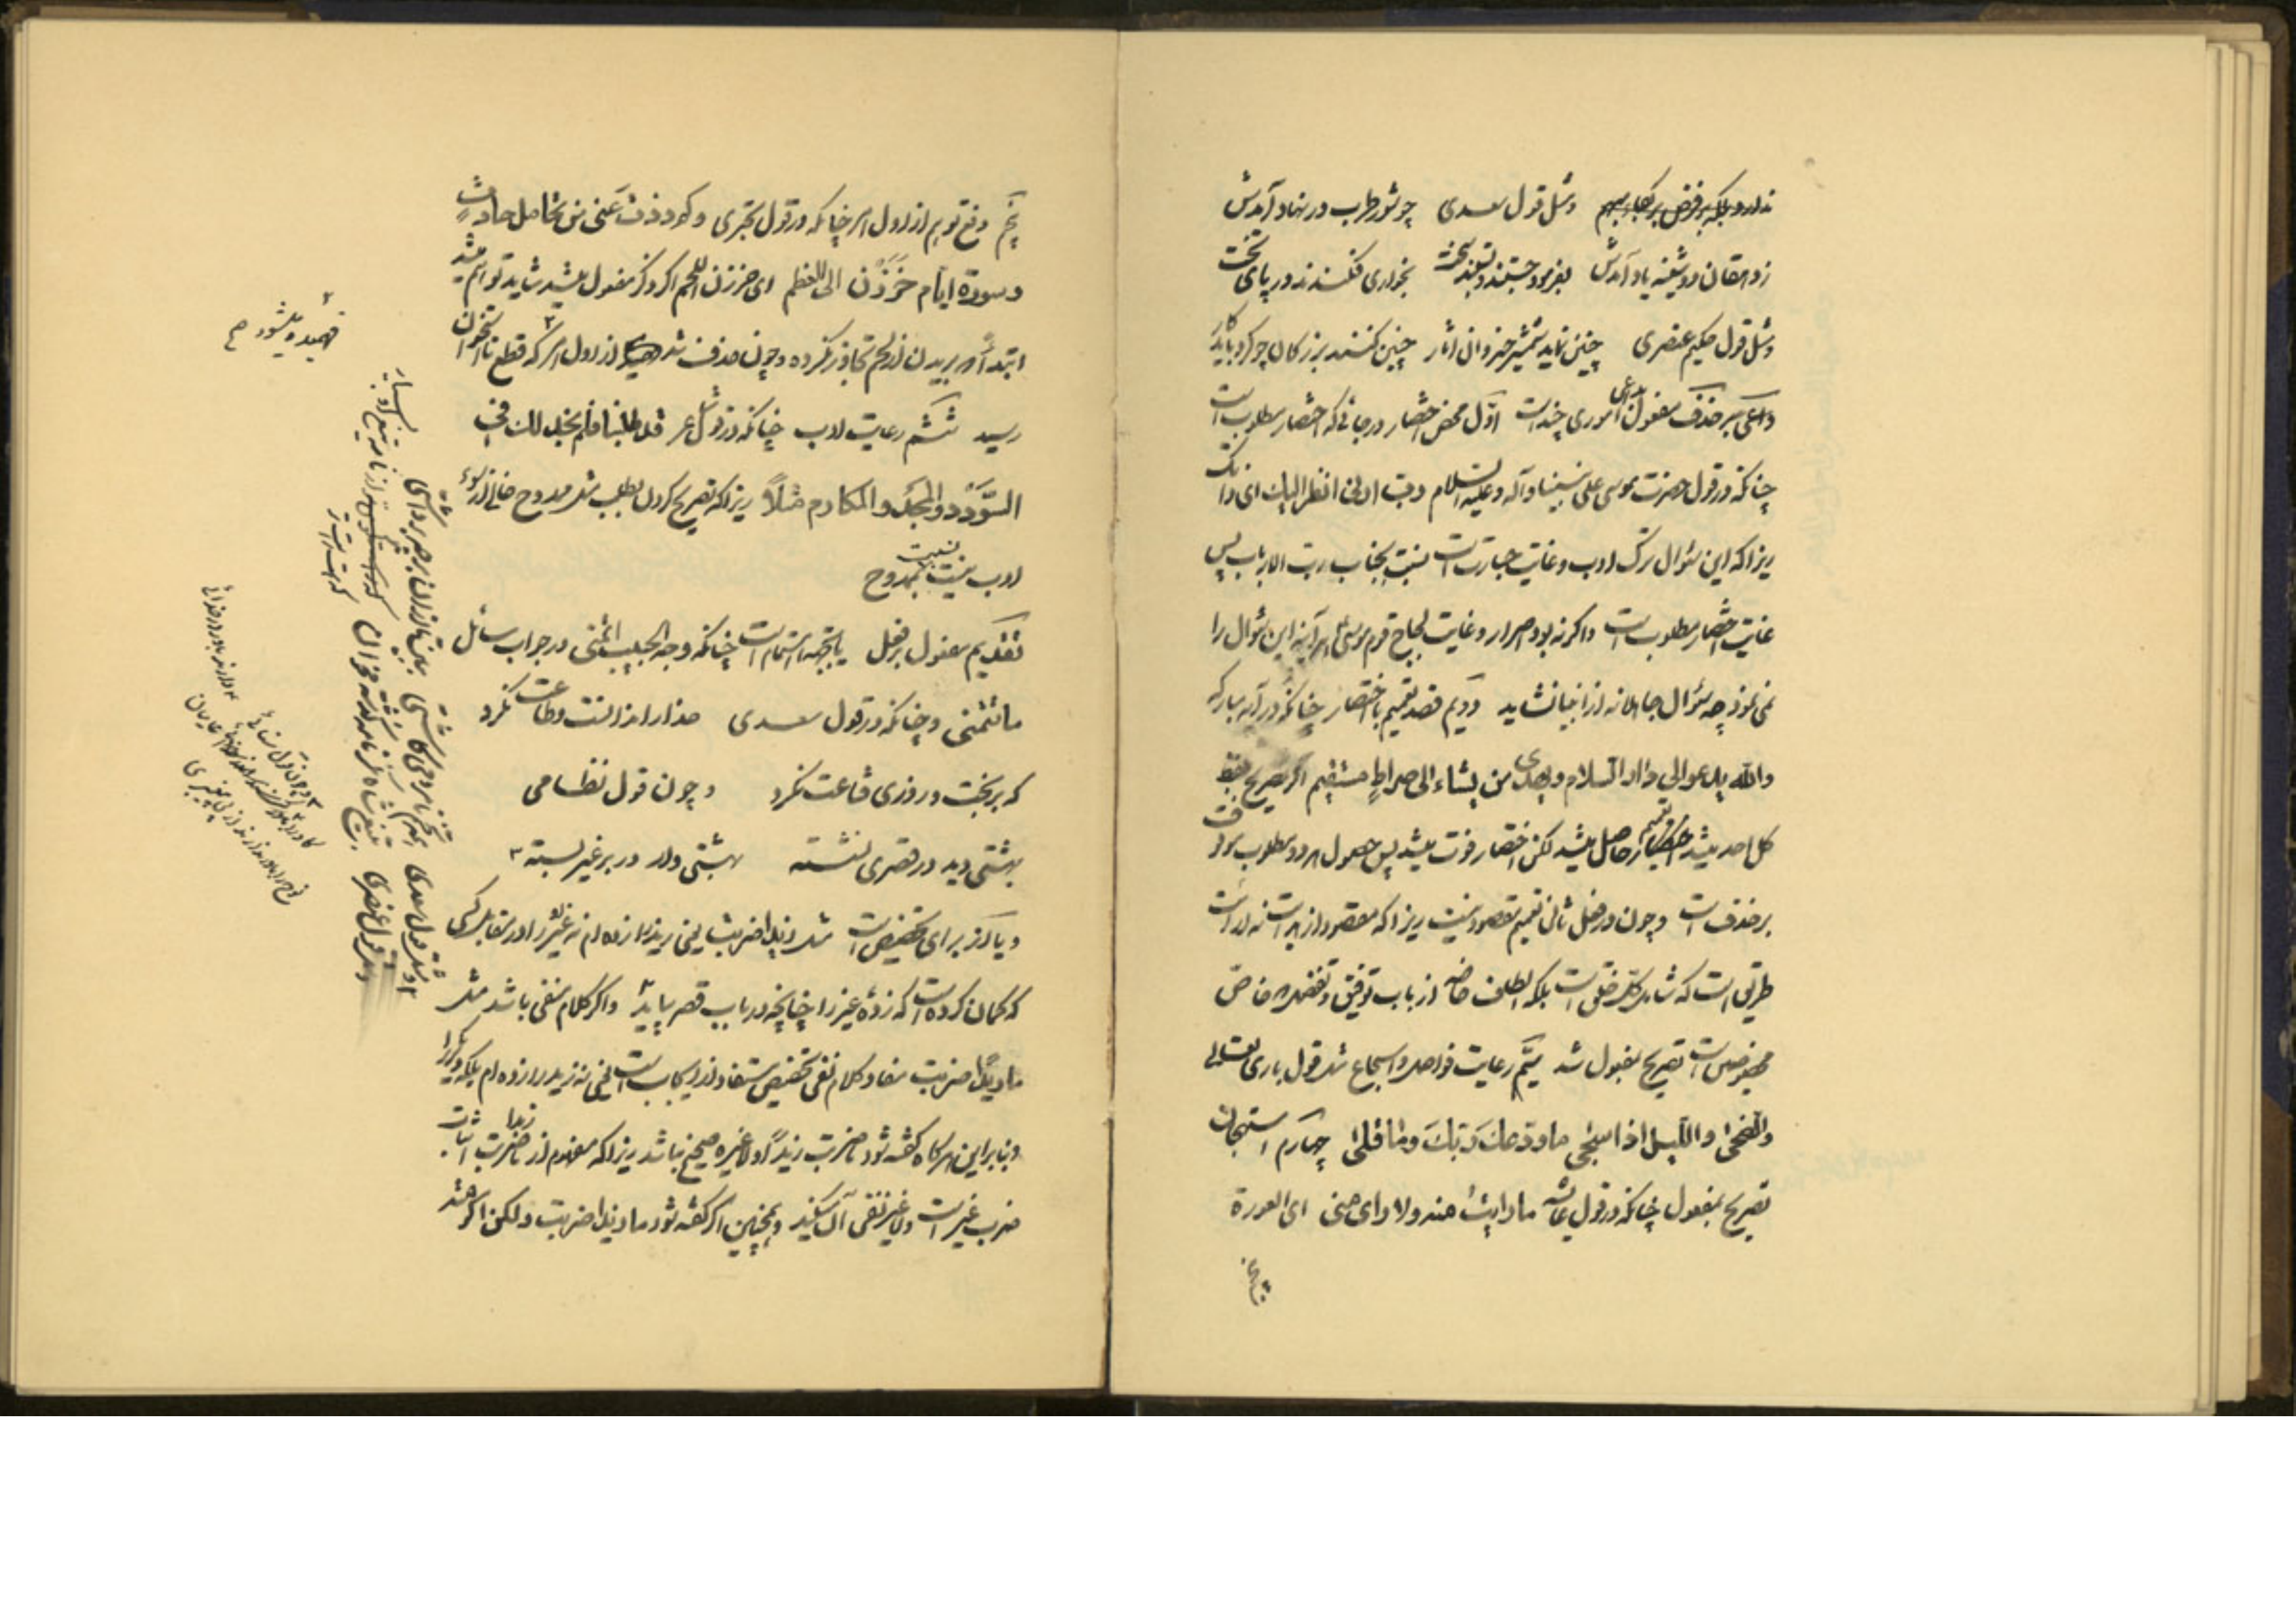 ندارد بلکه بر فرض بر بکاء مبهم ومثل قول سعدی چو شور طرب در نهاد آمدش
ز دهقان دوشینه یاد آمدش بفرمود جستند و بستند سخت بخواری فکندند در پای تخت
ومثل قول حکیم عنصری چنین نماید شمشیر خسروان آثار چنین کنند بزرگان چو کرد باید کار
و داعی بر حذف مفعول اموری چند است اوّل محض اختصار در جائی که اختصار مطلوب است
چنانکه در قول حضرت موسی علی نبینا وآله وعلیه السلام رب ارنی انظر الیک ای ذاتک
زیرا که این سؤال ترک ادب و غایت جسارت است نسبت بجناب رب الارباب پس
غایت اختصار مطلوب است واگر نه بود اصرار و غایت لجاج قوم موسی هر آینه این سؤال را
نمی نمود چه سؤال جاهلانه از انبیا نشاید دویم قصد تعمیم با اختصار چنانکه در آیه مبارکه
والله یدعو الی دار السلام ویهدی من یشاء الی صراط مستقیم اگر تصریح بلفظ
کل احد میشد تعمیم حاصل میشد لکن اختصار فوت میشد پس حصول هر دو مطلوب موقوف
بر حذف است و چون در فعل ثانی تعمیم مقصود نیست زیرا که مقصود از هدایت نه ارائت
طریق است که شامل کل خلق است بلکه لطف خاصه از باب توفیق و تفضل خاص
مخصوص است تصریح بمفعول شد سیّم رعایت فواصل و اسجاع مثل قول باری تعالی
والضحی واللیل اذا سجی ما ودّعک ربّک وما قلی چهارم استهجان
تصریح بمفعول چنانکه در قول عایشه ما رایت منه ولا رای منی ای العورة
پنجم
پنجم دفع توهم از اول امر چنانکه در قول بحتری وکم ذدت عنی من تحامل حادث
وسورة ایام حززن الی العظم ای حززن اللحم اگر ذکر مفعول میشد شاید توهم میشد
ابتداءً که بریدن از لحم تجاوز نکرده و چون حذف شد از اول امر که قطع تا استخوان
رسید ششم رعایت ادب چنانکه در قول شاعر قد طلبنا فلم نجد لک فی
السّؤدد والمجد والمکارم مثلاً زیرا که تصریح کردن بطلب مثل ممدوح خالی از سوء
ادب نیست نسبت بممدوح
تقدیم مفعول بر فعل یا بجهة اهتمام است چنانکه وجه الحبیب اتمنی در جواب سائل
ما تتمنی و چنانکه در قول سعدی خدا را ندانست و طاعت نکرد
که بر بخت و روزی قناعت نکرد و چون قول نظامی
بهشتی دید در قصری نشسته بهشتی وار در بر غیر بسته ۳
و یا از برای تخصیص است مثل زیداً ضربت یعنی زید را زده ام نه غیر او را در مقابل کسی
که گمان کرده است که زدهٔ غیر را چنانچه در باب قصر بیاید واگر کلام منفی باشد مثل
ما زیداً ضربت مفاد کلام نفی تخصیص مستفاد از ایجاب است یعنی نه زید را زده ام بلکه دیگری را
و بنابراین هر گاه گفته شود ما زیداً ضربت ولا غیره صحیح نباشد زیرا که مفهوم از ما زیدا ضربت اثبات
ضرب غیر است ولا غیره نفی آن میکند و همچنین اگر گفته شود ما زیداً ضربت ولکن اکرمته
۲
فهمیده میشود صح
۲ ومثل قول سعدی
ومثل قول عنصری